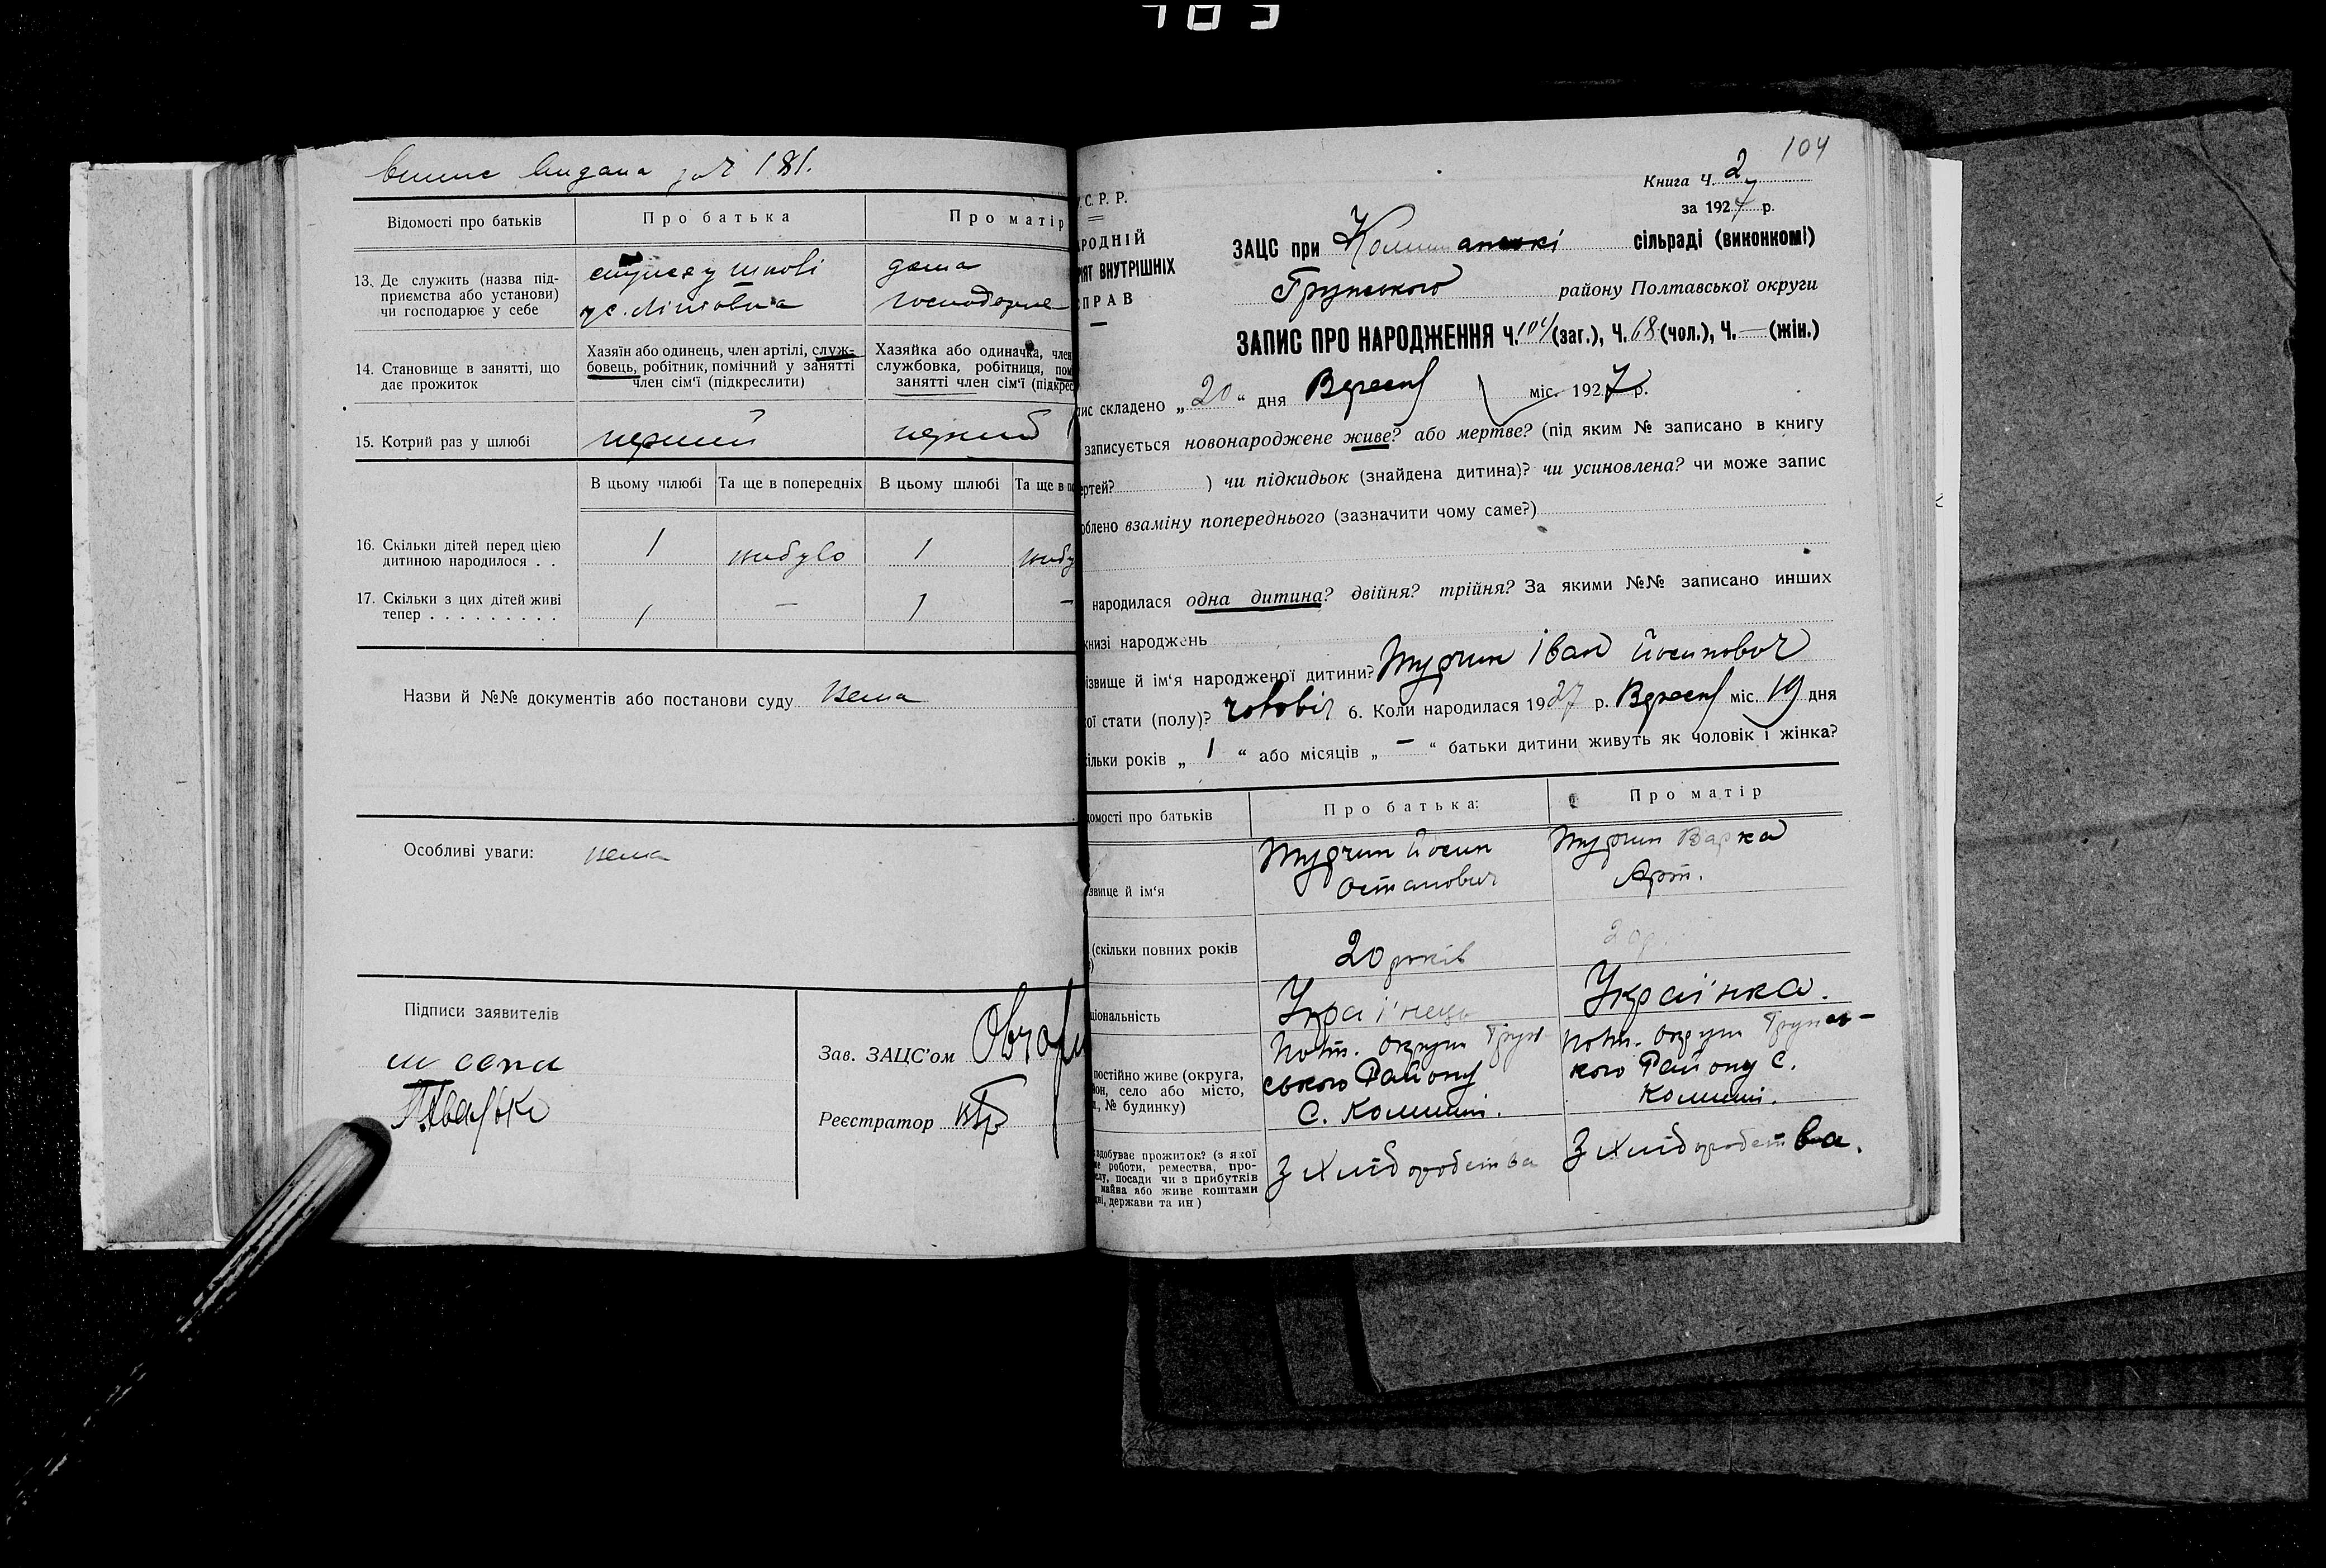 181.
Відомості про батьків
Про батька
Про матір
13. Де служить (назва під-
приємства або установи)
чи господарює у себе
14. Становище в занятті, що
дає прожиток
Хазяїн або одинець, член артілі, служ-
бовець, робітник, помічний у занятті
член сім'ї (підкреслити)
Хазяйка або одиначка, член
службовка, робітниця, пом
занятті член сім'ї (підкрес
15. Котрий раз у шлюбі
перший
перший
В цьому шлюбі
Та ще в попередніх
В цьому шлюбі
Та ще в по
16. Скільки дітей перед цією
дитиною народилося . .
1
небуло
1
небу
17. Скільки з цих дітей живі
тепер . . . . . . . . .
1
—
1
—
Назви й №№ документів або постанови суду нема
Особливі уваги: нема
Підписи заявителів
Зав. ЗАЦС'ом
Реєстратор
104
Книга Ч. 2
за 1927 р.
.С.Р.Р.
РОДНІЙ
РІЯТ ВНУТРІШНІХ
ПРАВ
ЗАЦС при сільраді (виконкомі)
Грунського району Полтавської округи
ЗАПИС ПРО НАРОДЖЕННЯ Ч. 104 (заг.), Ч. 68 (чол.), Ч. — (жін.)
ис складено „ 20 “ дня Вересня міс. 1927 р.
записується новонароджене живе? або мертве? (під яким № записано в книгу
ертей? ) чи підкидьок (знайдена дитина)? чи усиновлена? чи може запис
облено взаміну попереднього (зазначити чому саме?)
народилася одна дитина? двійня? трійня? За якими №№ записано инших
книзі народжень
ізвище й ім'я народженої дитини? Іван Йосипович
ої стати (полу)? чоловіч 6. Коли народилася 1927 р. Вересня міс. 19 дня
ільки років „ 1 “ або місяців „ — “ батьки дитини живуть як чоловік і жінка?
домості про батьків
Про батька:
Про матір
звище й ім'я
Йосип
Остапович
Варка
Арт.
(скільки повних років
20 років
20р.
ціональність
Українець
Українка.
постійно живе (округа,
йон, село або місто,
., № будинку)
Полт. округи Грун
ського Району
С. Комиші.
Полт. округи Грунсь-
кого Району С.
Комиші.
здобуває прожиток? (з якої
ме роботи, ремества, про-
слу, посади чи з прибутків
майна або живе коштами
дні, держави та ин)
З хліборобства
З хліборобства.